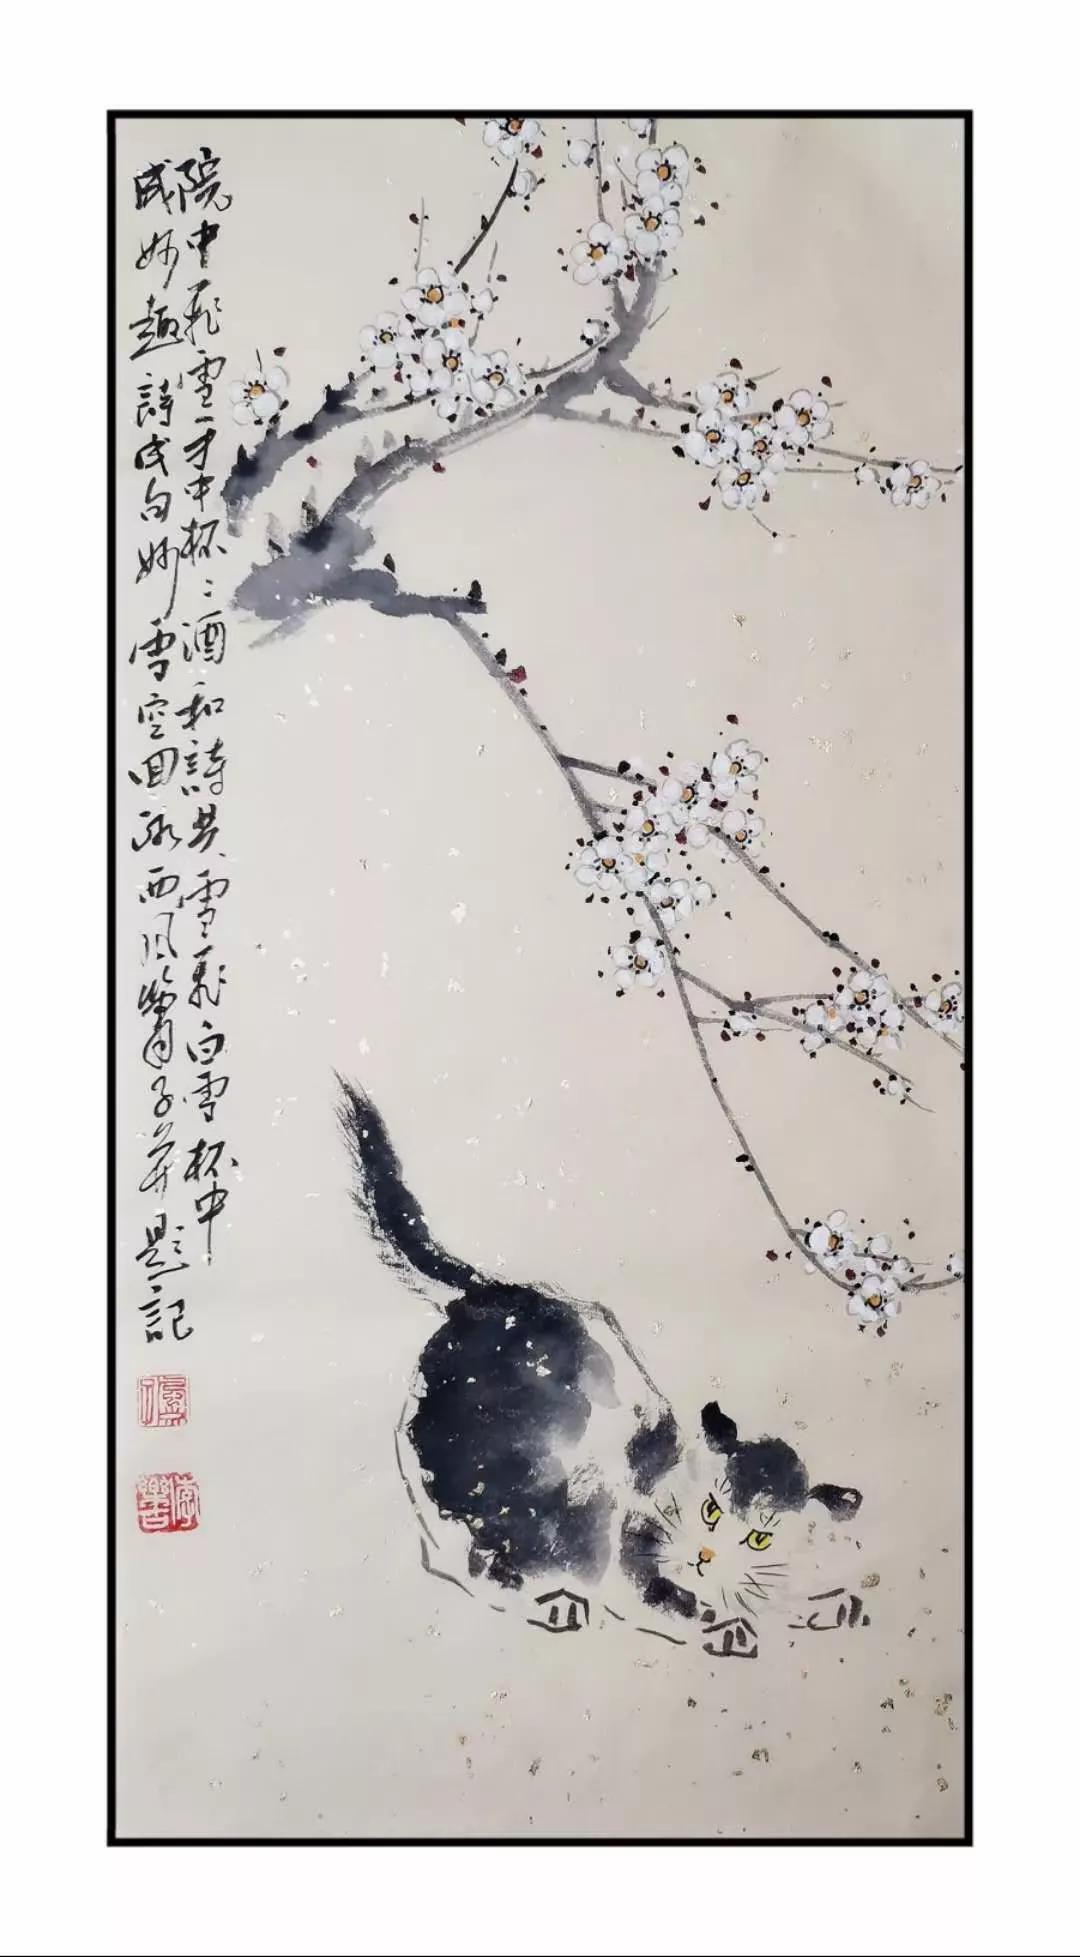 院中飛雪一才中杯〻酒和詩共雪飛白雪杯中
成妙趣詩成句妙雪空回詠西風 子 題記